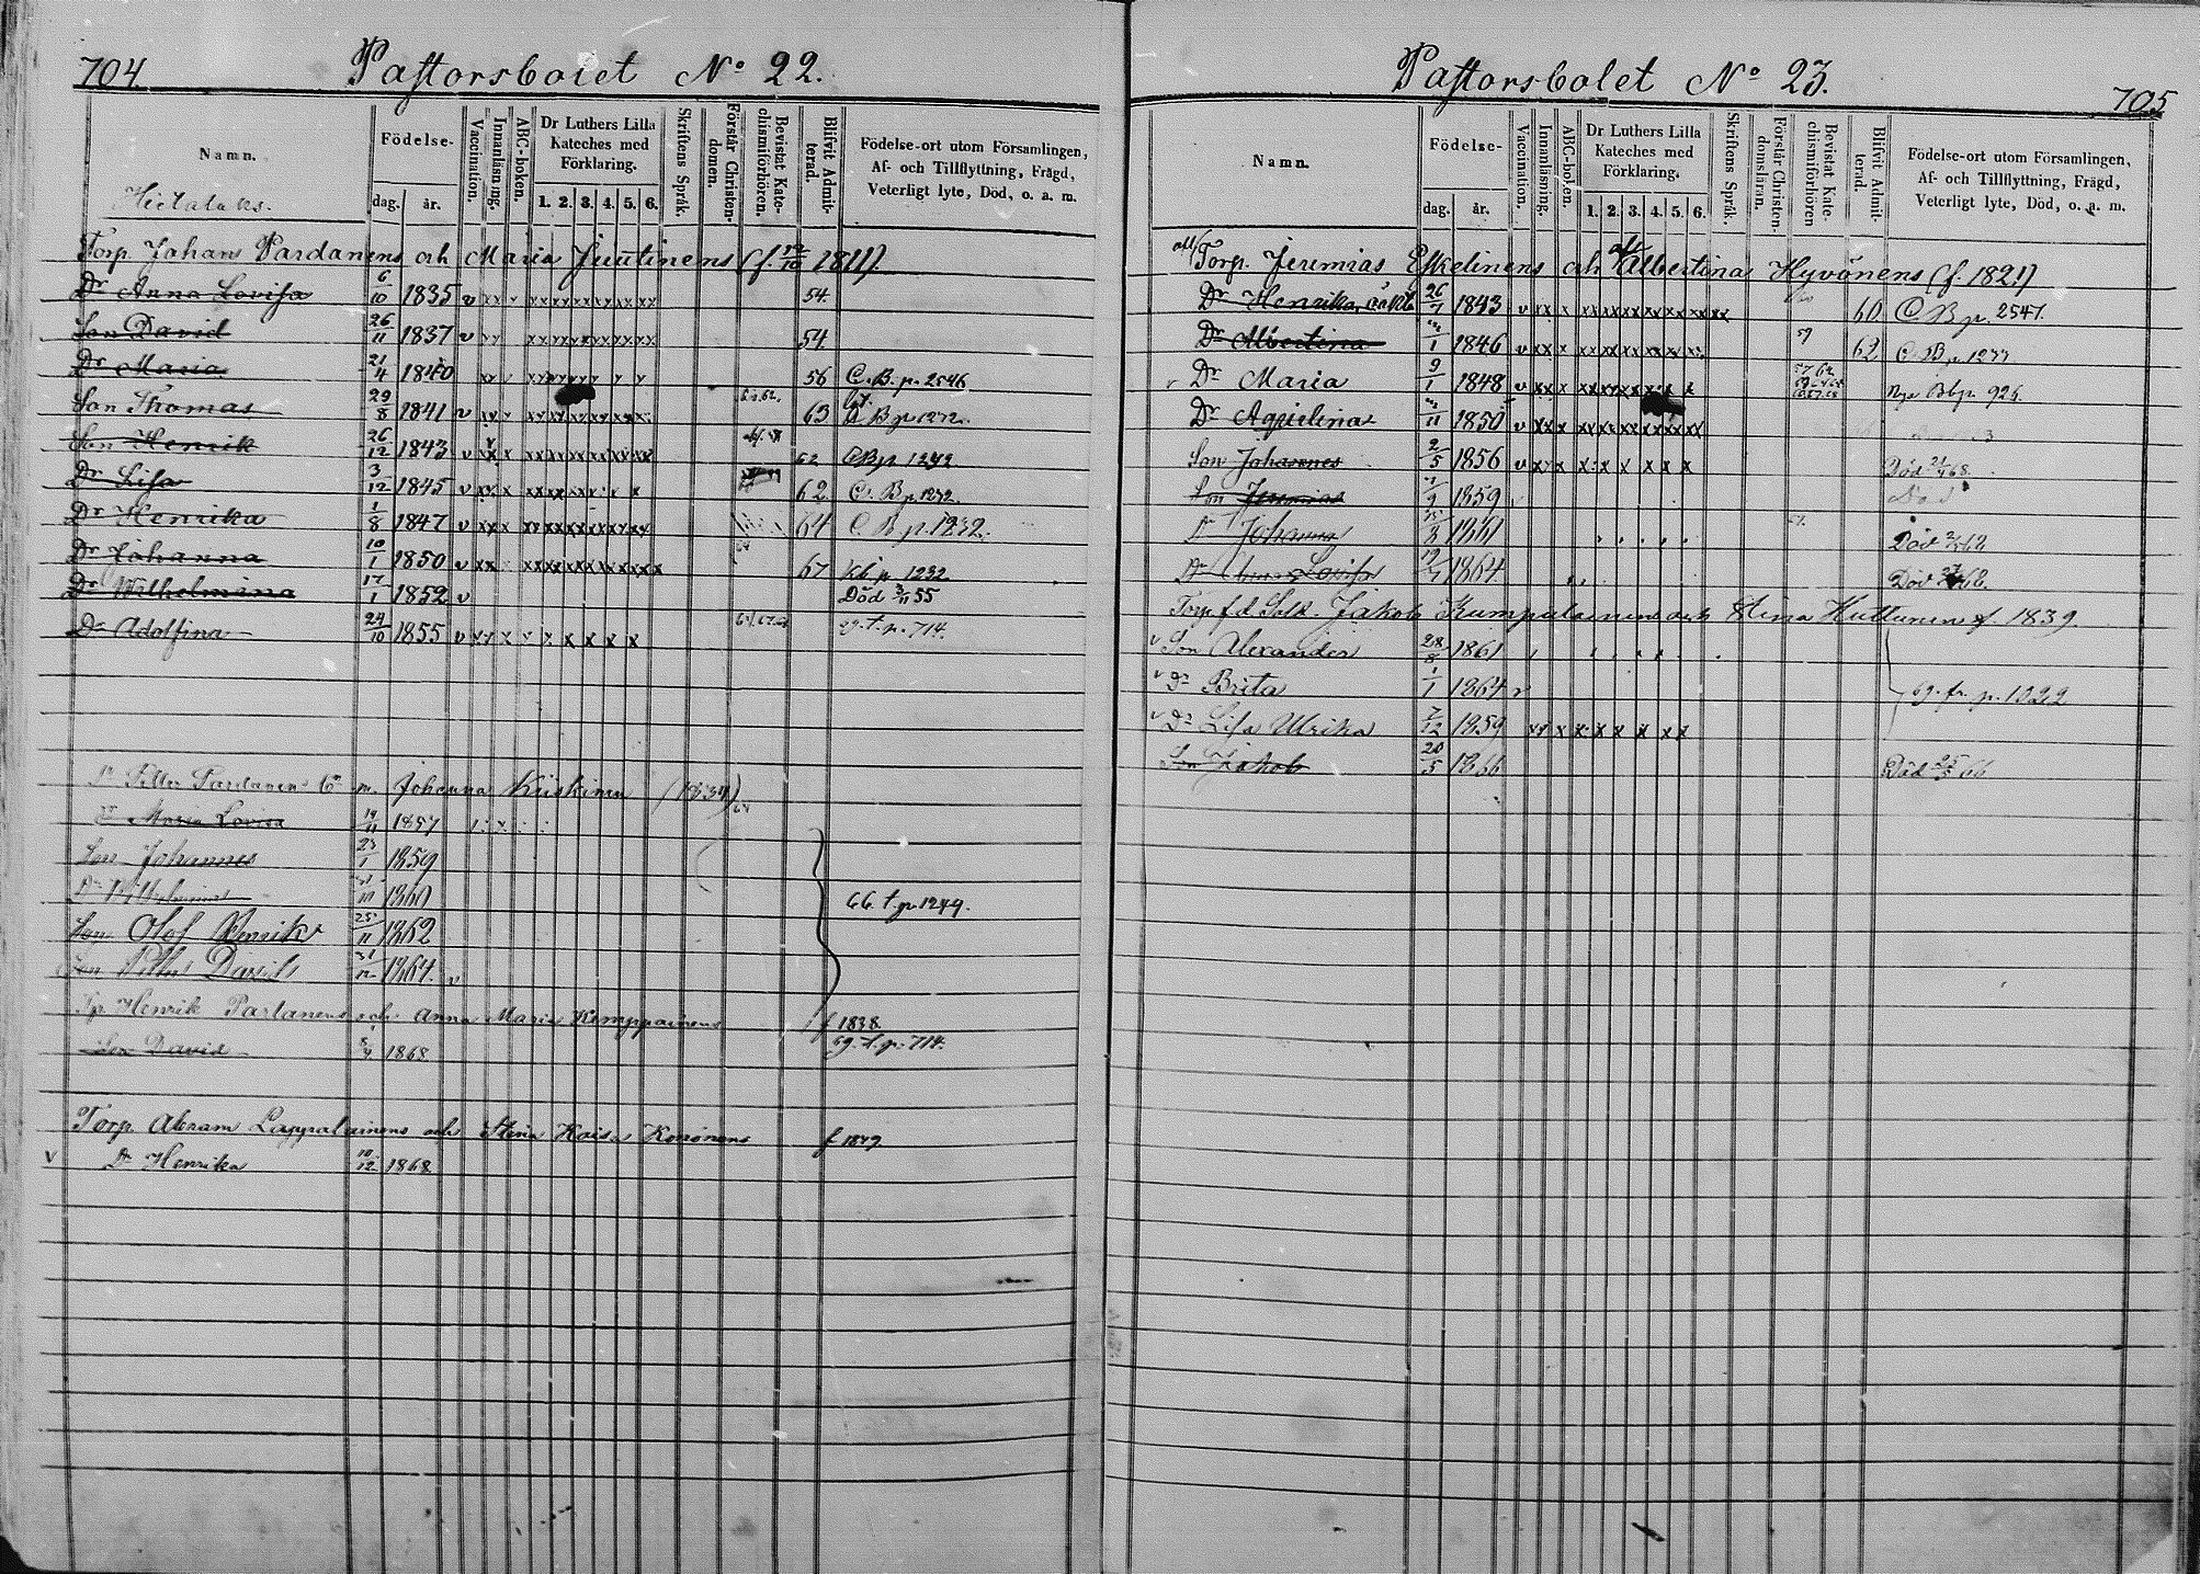 704.
Pastorsbolet No 22.
Namn.
Födelse-
dag.
år.
Vaccination.
Innanläsning.
ABC-boken.
Dr Luthers Lilla
Kateches med
Förklaring.
1. 2. 3. 4. 5. 6.
Skriftens Språk.
Förstår Christen-
domen.
Bevistat Kate-
chismiförhören.
Blifvit Admit-
terad.
Födelse-ort utom Församlingen,
Af- och Tillflyttning, Frägd,
Veterligt lyte, Död, o. a. m.
Hietalaks.
Torp. Johans Pardanens och Maria Juutinens (f. 1811).
Dr Anna Lovisa 6/10 1835 v 54.
Son David 26/11 1837 v 54
Dr Maria 21/4 1840 56 C. B. p. 2546
Son Thomas 29/8 1841 v 63 C B p 1272.
Son Henrik 26/12 1843 v 62 C B p 1292
Dr Lisa 3/12 1845 v 62 C. B p 1272.
Dr Henrika 1/8 1847 v 64 C. B p. 1232.
Dr Johanna 10/1 1850 v 67 Kb p. 1232
Dr Wilhelmina 17/1 1852 v Död 3/11 55
Dr Adolfina 24/10 1855 v 69. t. p. 714.
Petter Pardanens m. Johanna Kiiskinen
Dr Maria Lovisa 19/11 1857
Son Johannes 23/1 1859
Dr Wilhelmina 1860
66. t. p 1249.
Son Olof Henrik 25/11 1862
Son Petter David 1864. v
Tp. Henrik Partanens och Anna Maria Kemppainens f 1838
Son David 1868 69. t. p. 714.
Torp. Abram Lappalainens och Stina Kaisa Konönens f 1849
v Dr Henrika 10/12 1868
Pastorsbolet No 23.
705
Namn.
Födelse-
dag.
år.
Vaccination.
Innanläsning.
ABC-boken.
Dr Luthers Lilla
Kateches med
Förklaring.
1. 2. 3. 4. 5. 6.
Skriftens Språk.
Förstår Christen-
domsläran.
Bevistat Kate-
chismiförhören
Blifvit Admit-
terad.
Födelse-ort utom Församlingen,
Af- och Tillflyttning, Frägd,
Veterligt lyte, Död, o. a. m.
Torp. Jeremias Eskelinens och Albertina Hyvönens (f. 1821)
Dr Henrika 26/7 1843 v 60 C B p. 2547.
Dr Albertina 1846 v 59 62 C. B p 1277
Dr Maria 9/1 1848 v Nya Bbp. 926.
Dr Aqvilina 1850 v
Son Johannes 2/5 1856 v Död 68.
Son Jeremias 1859
Dr Johanna 1861 Död 62
Dr Anna Lovisa 1864 Död
Torp. f. d. Sold. Jakob Kumpulainens och Stina Huttunen f 1839
v Son Alexander 28/8 1861
v Dr Brita 1/1 1864 v 69. fr. p. 1222
v Dr Lisa Ulrika 7/12 1859
Son Jakob 20/5 1866 Död 66